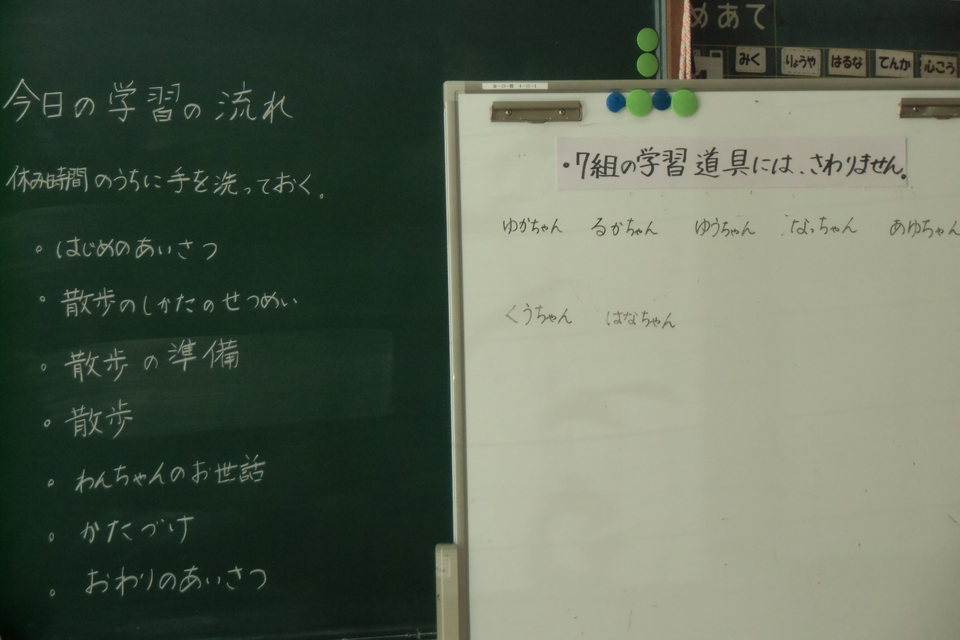 今日の学習の流れ
休み時間のうちに手を洗っておく。
・はじめのあいさつ
・散歩のしかたのせつめい
・散歩の準備
・散歩
・わんちゃんのお世話
・かたづけ
・おわりのあいさつ
めあて
みく りょうや はるな てんか 心こう
・7組の学習道具には、さわりません。
ゆかちゃん るかちゃん ゆうちゃん なっちゃん あゆちゃん
くうちゃん はなちゃん